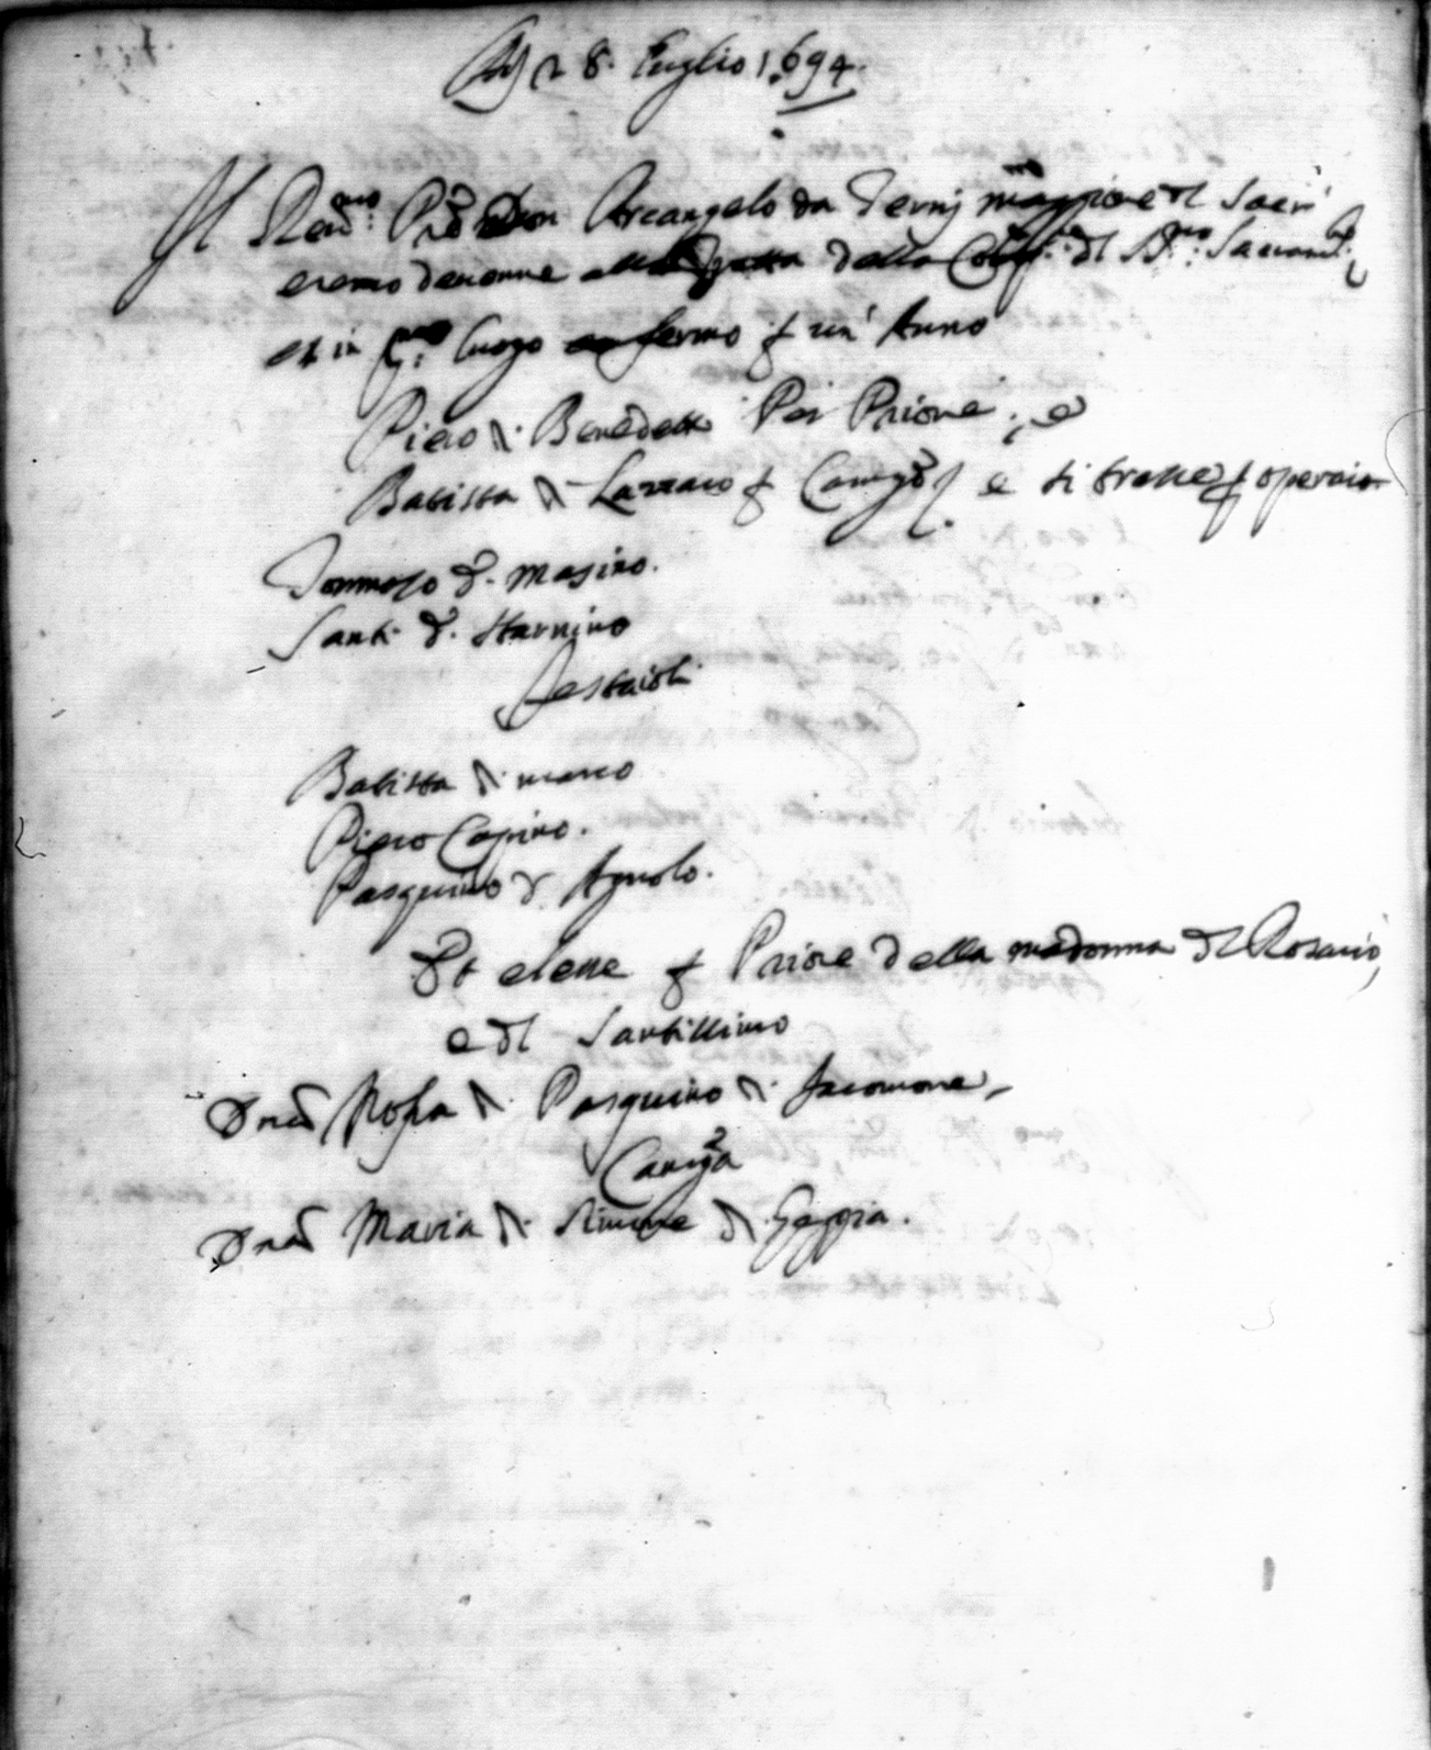 Ady 28. Luglio 1694.
Il Rev.mo Prd Don Arcangelo da Terni maggiore del Sacro
eremo devenne alla della Comp.a del SS.mo Sacram.to
et in p.mo luogo confermo p un' Anno
Piero di Benedetto Per Priore, e
Batista di Lazzaro p Camgo e si trasse p operaio
Tommaso d. Masino.
Santi d. Starnino
Festaioli
Batista di marco
Piero Capino.
Pasquino d. Agnolo.
Et elesse p Priore della madonna del Rosario,
e del Santissimo
Dnã Rosa di Pasquino di Jacomone,
Camga
Dnã Maria di Simone di Geppia.